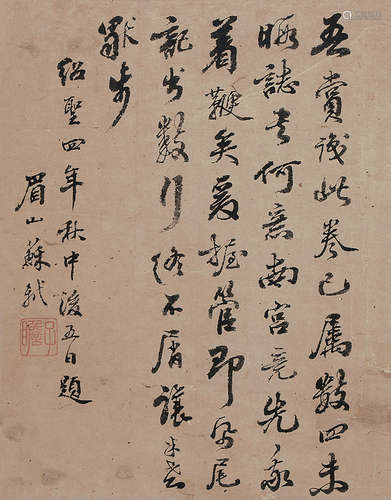 吾賞識此卷已屬數四未
暇誌之何意南宮竟先我
着鞭矣爰握管即帋尾
記數行終不屑讓米老
步
紹聖四年秋中後五日題
眉山蘇軾